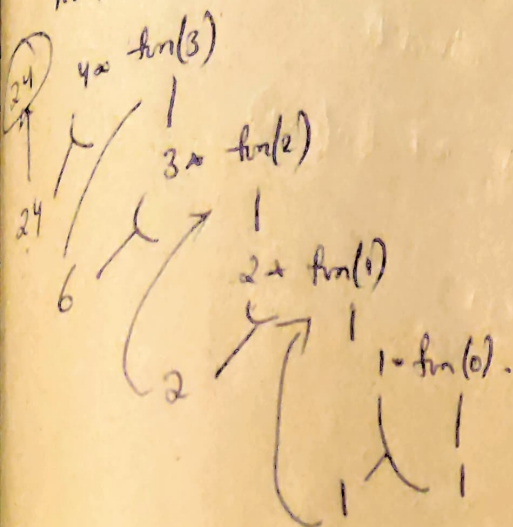 24
4* fun(3)
3* fun(2)
24
2* fun(1)
6
1* fun(0).
2
1
1